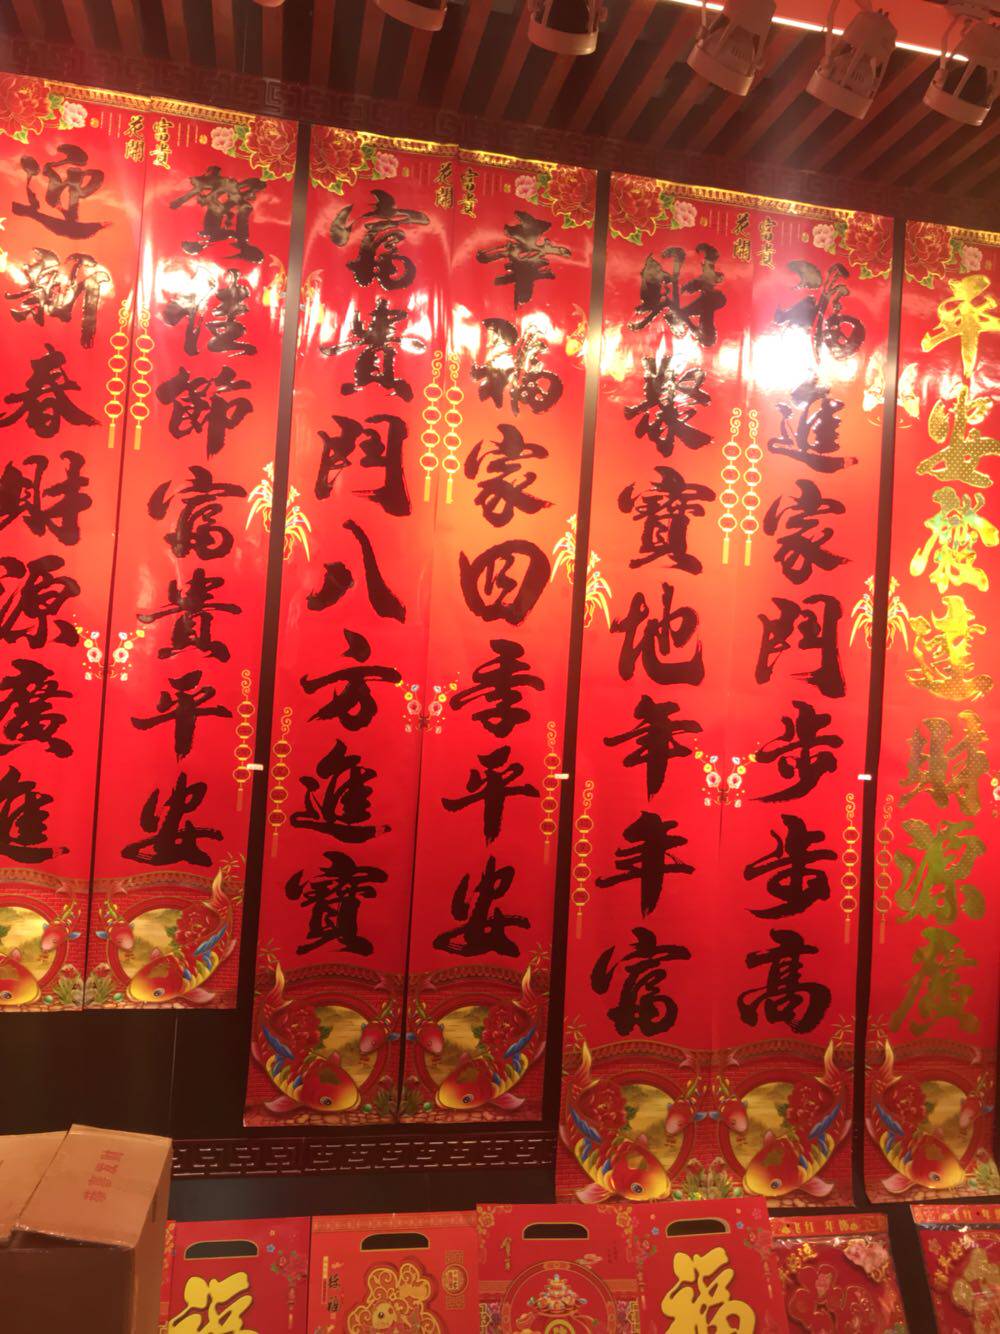 迎新春財源廣進
賀佳節富貴平安
花開
富貴
富貴門八方進寶
幸福家四季平安
花開
富貴
財聚寶地年年富
福進家門步步高
花開
富貴
平安發達財源廣
恭喜发财
福
福